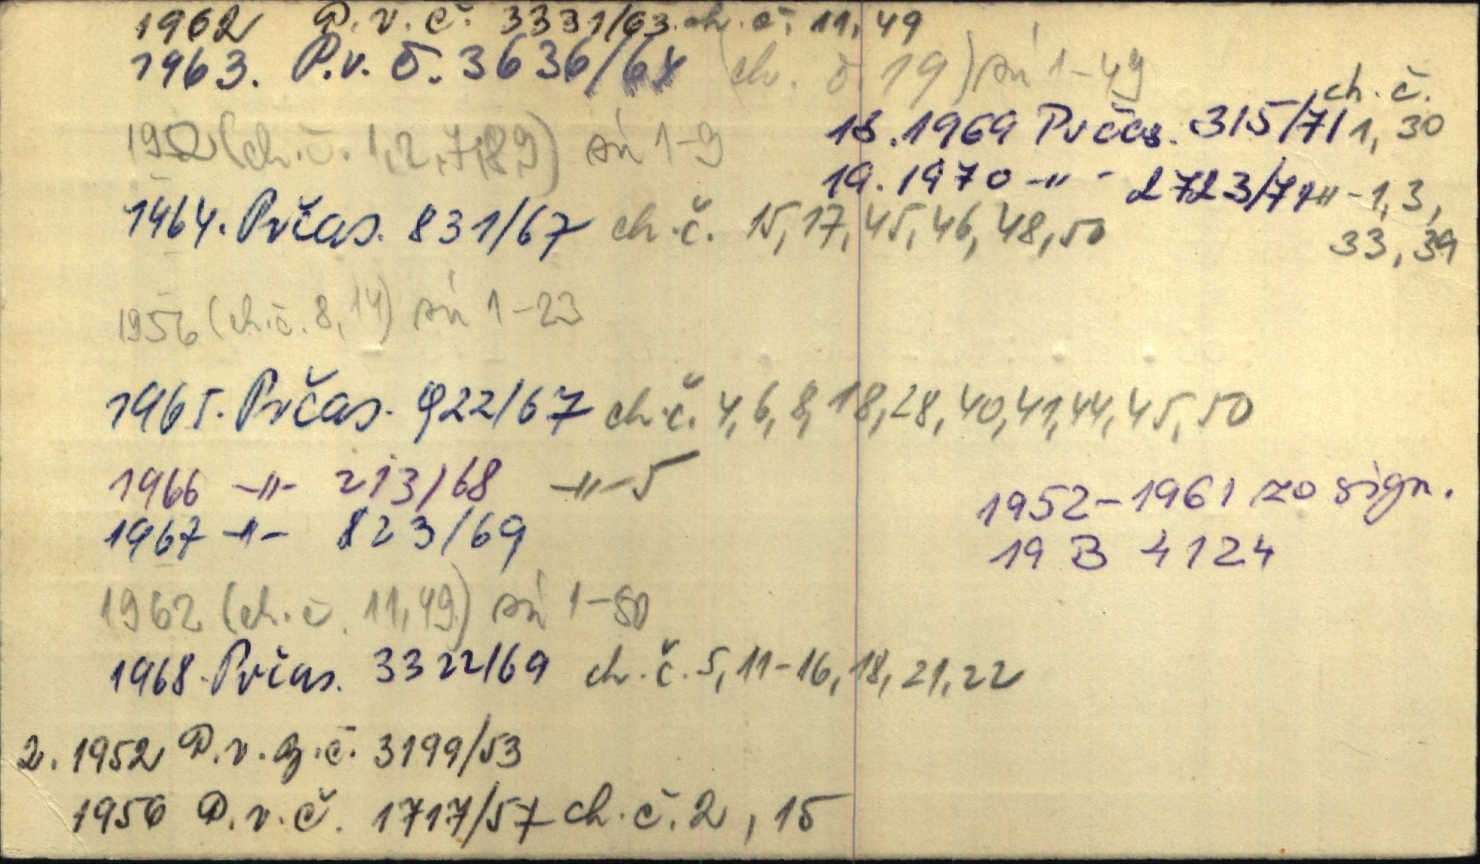 1962 P.v.č. 3331/63 ch.č. 11, 49
1963. P.v.č. 3636/64 (ch. č. 19) sú 1-49
1952 (ch.č. 1,2,7,8,9) sú 1-9
1964. Pvčas. 831/67 ch.č. 15,17,45,46,48,50
1956 (ch.č. 8,14) sú 1-23
1965. Pvčas. 922/67 ch.č. 4,6,8,18,28,40,41,44,45,50
1966 -"- 213/68 -"- 5
1967 -"- 823/69
1962 (ch.č. 11,49) sú 1-50
1968. Pvčas. 3322/69 ch.č. 5, 11-16, 18, 21, 22
2. 1952 P.v.g.č. 3199/53
1956 P.v.č. 1717/57 ch.č. 2, 15
ch.č.
18. 1969 Pvčas. 315/71 1, 30
19. 1970 -"- 2723/71 -"- 1,3,
33, 39
1952-1961 zo sign.
19 B 4124